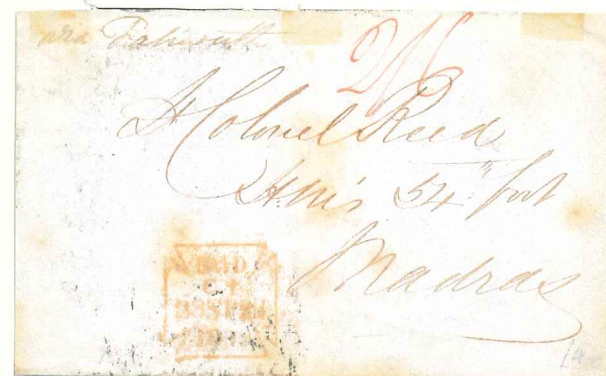 via Falmouth
2/6
Lt Colonel Reed
H.M's 54th foot
Madras